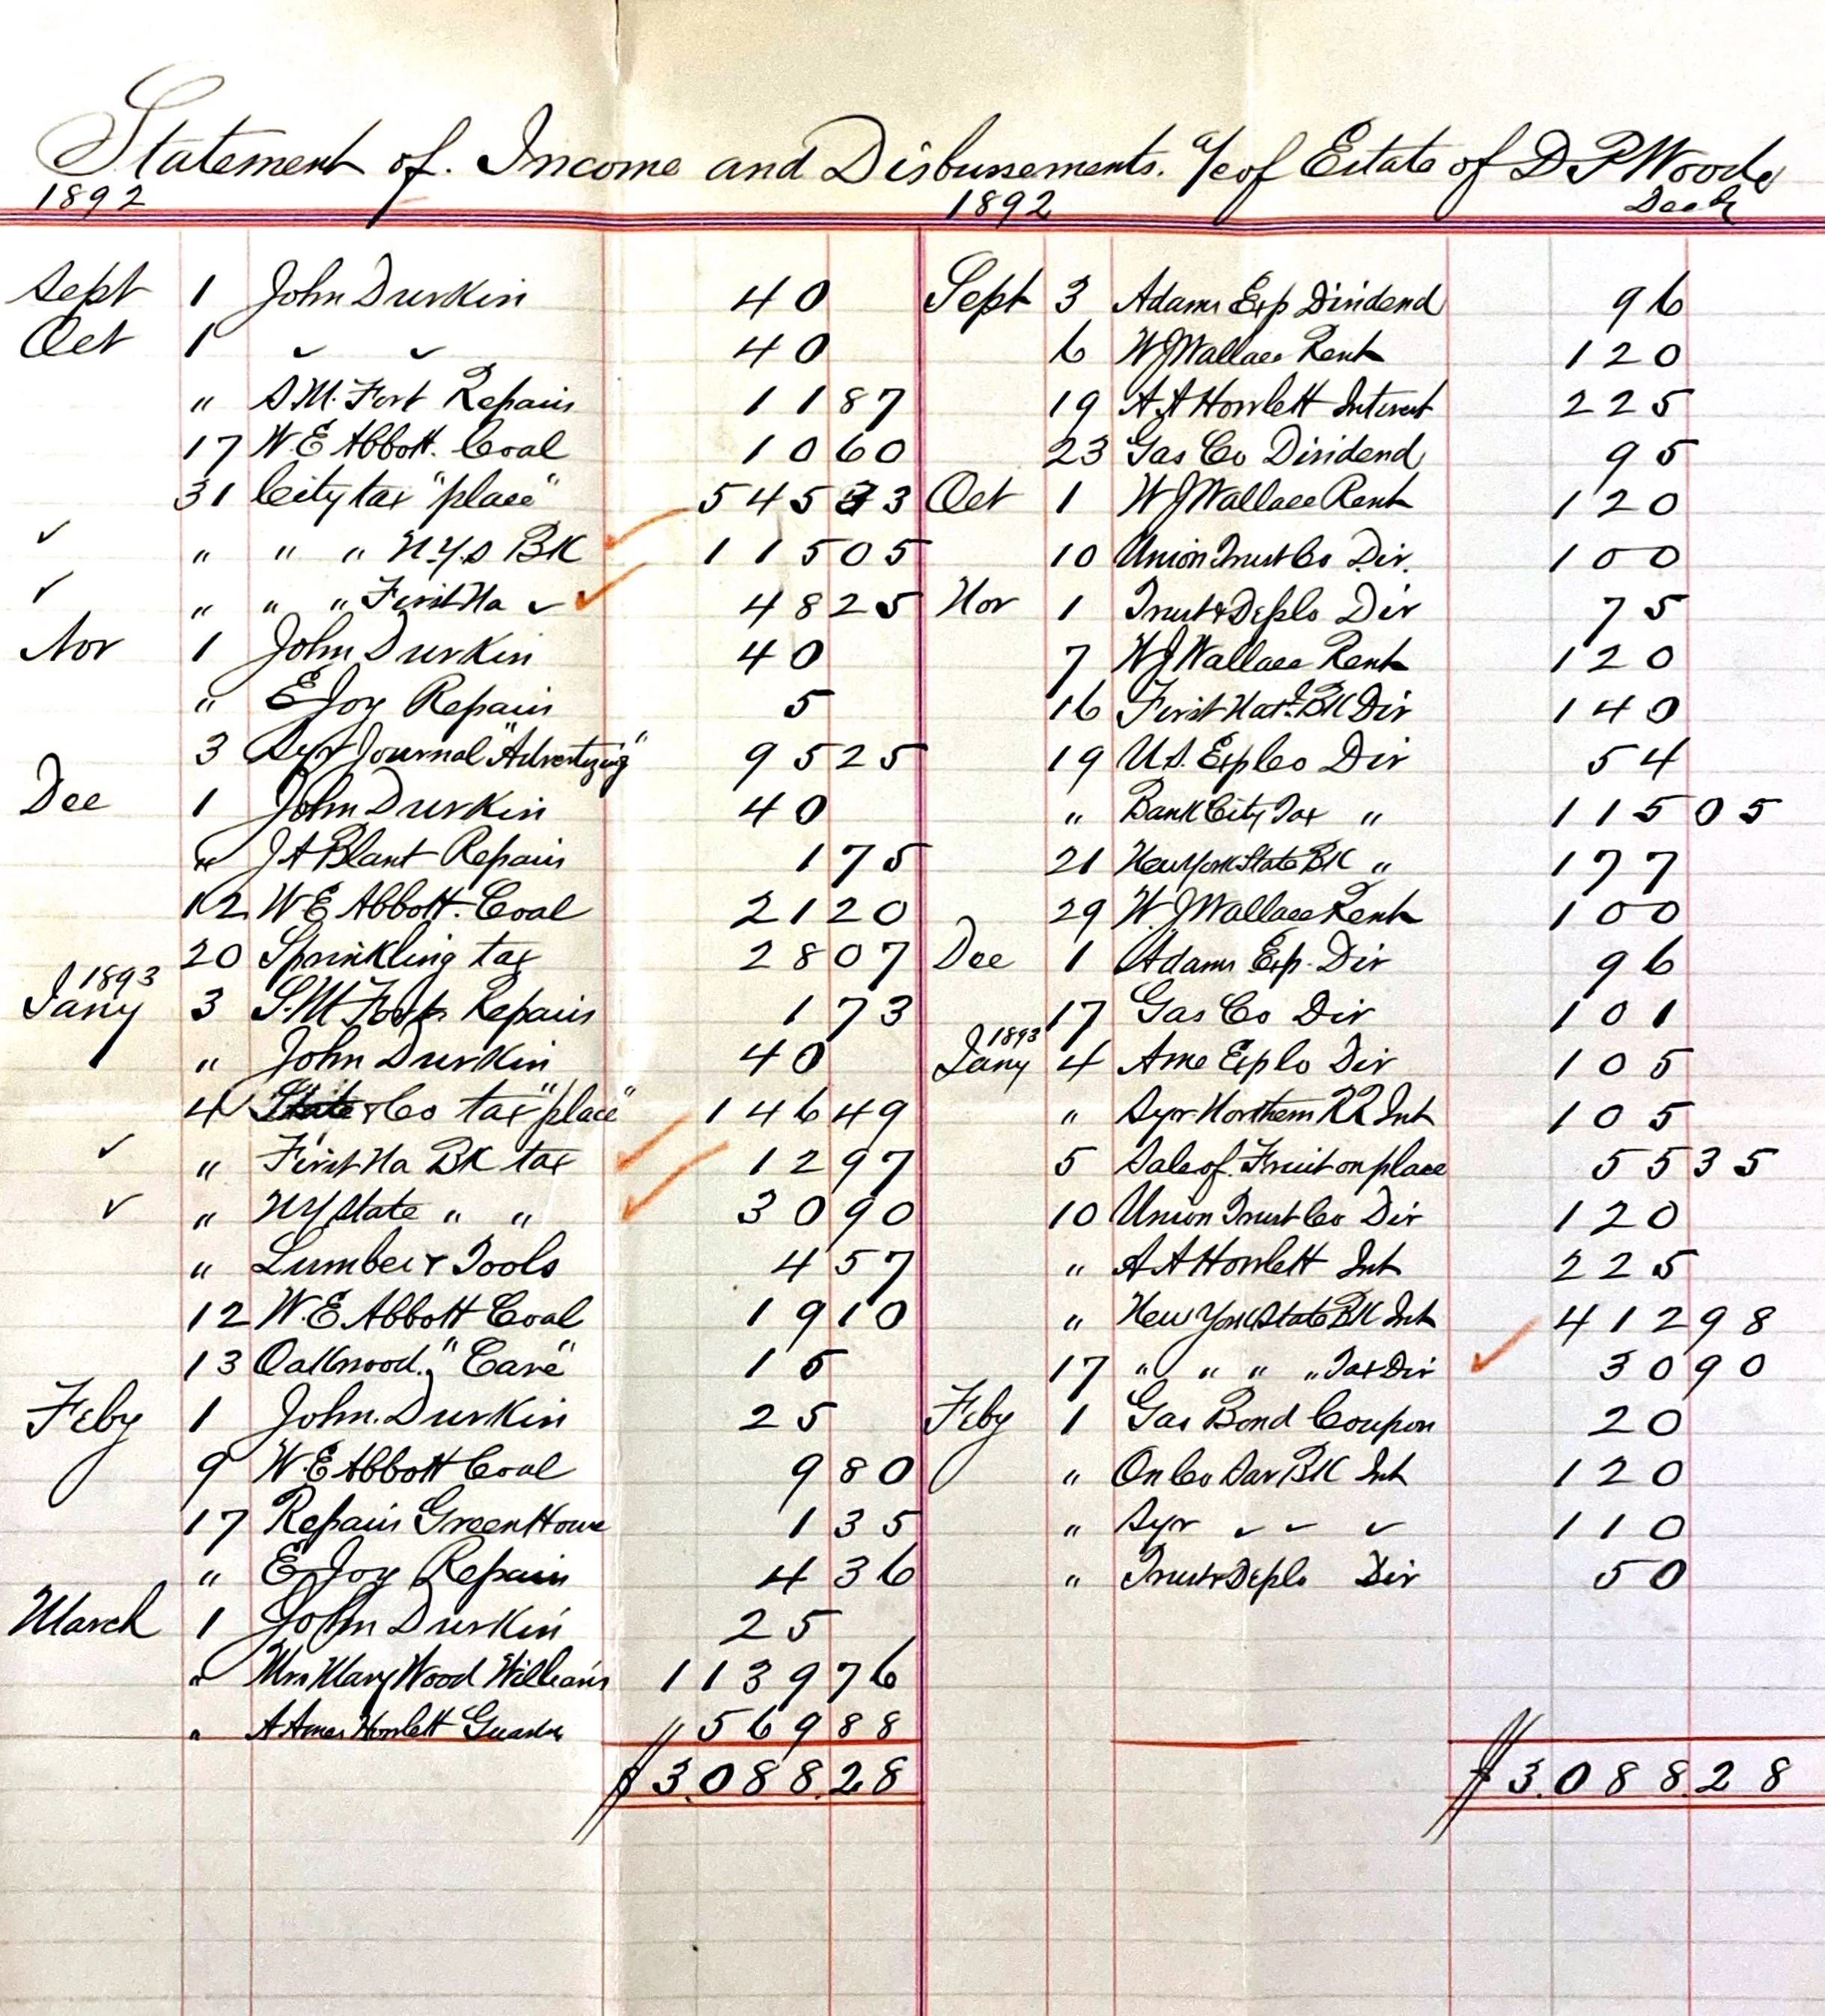 Statement of. Income and Disbursements. a/c of Estate of D P Wood
1892 1892 Decd
Sept 1 John Durkin 40
Oct 1 " " 40
" S.M. Fort Repairs 11 87
17 W.E Abbott. Coal 10 60
31 City tax "place" 545 33
✓ " " " N.Y.S BK ✓ 115 05
✓ " " " First Na " ✓ 48 25
Nov 1 John Durkin 40
" E Joy Repairs 5
3 Syr Journal "Advertizing" 95 25
Dec 1 John Durkin 40
" J A Blant Repairs 1 75
12 W E Abbott. Coal 21 20
20 Sprinkling tax 28 07
1893
Jany 3 S.M Repairs 1 73
" John Durkin 40
4 State & Co tax "place" 146 49
✓ " First Na BK tax ✓ 12 97
✓ " NY State " " ✓ 30 90
" Lumber & Tools 4 57
12 W.E Abbott Coal 19 10
13 Oakwood. "Care" 15
Feby 1 John. Durkin 25
9 W.E Abbott Coal 9 80
17 Repairs Green House 1 35
" E Joy Repairs 4 36
March 1 John Durkin 25
" Mrs Mary Wood Williams 1139 76
" A Ames Howlett Guardn 569 88
$3.088.28
Sept 3 Adams Exp Dividend 96
6 W J Wallace Rent 120
19 A A Howlett Interest 225
23 Gas Co Dividend 95
Oct 1 W J Wallace Rent 120
10 Union Trust Co Div. 100
Nov 1 Trust & Dep Co Div 75
7 W J Wallace Rent 120
16 First Nat. BK Div 140
19 U.S. Exp Co Div 54
" Bank City Tax " 115 05
21 New York State BK " 177
29 W. J Wallace Rent 100
Dec 1 Adams Exp. Div 96
17 Gas Co Div 101
1893
Jany 4 Ame Exp Co Div 105
" Syr. Northern RR Int 105
5 Sale of. Fruit on place 55 35
10 Union Trust Co Div 120
" A A Howlett Int 225
" New York State BK Int 412 98
17 " " " " Tax Div ✓ 30 90
Feby 1 Gas Bond Coupon 20
" On Co Sav BK Int 120
" Syr " " " 110
" Trust & Dep Co Div 50
$3.088.28